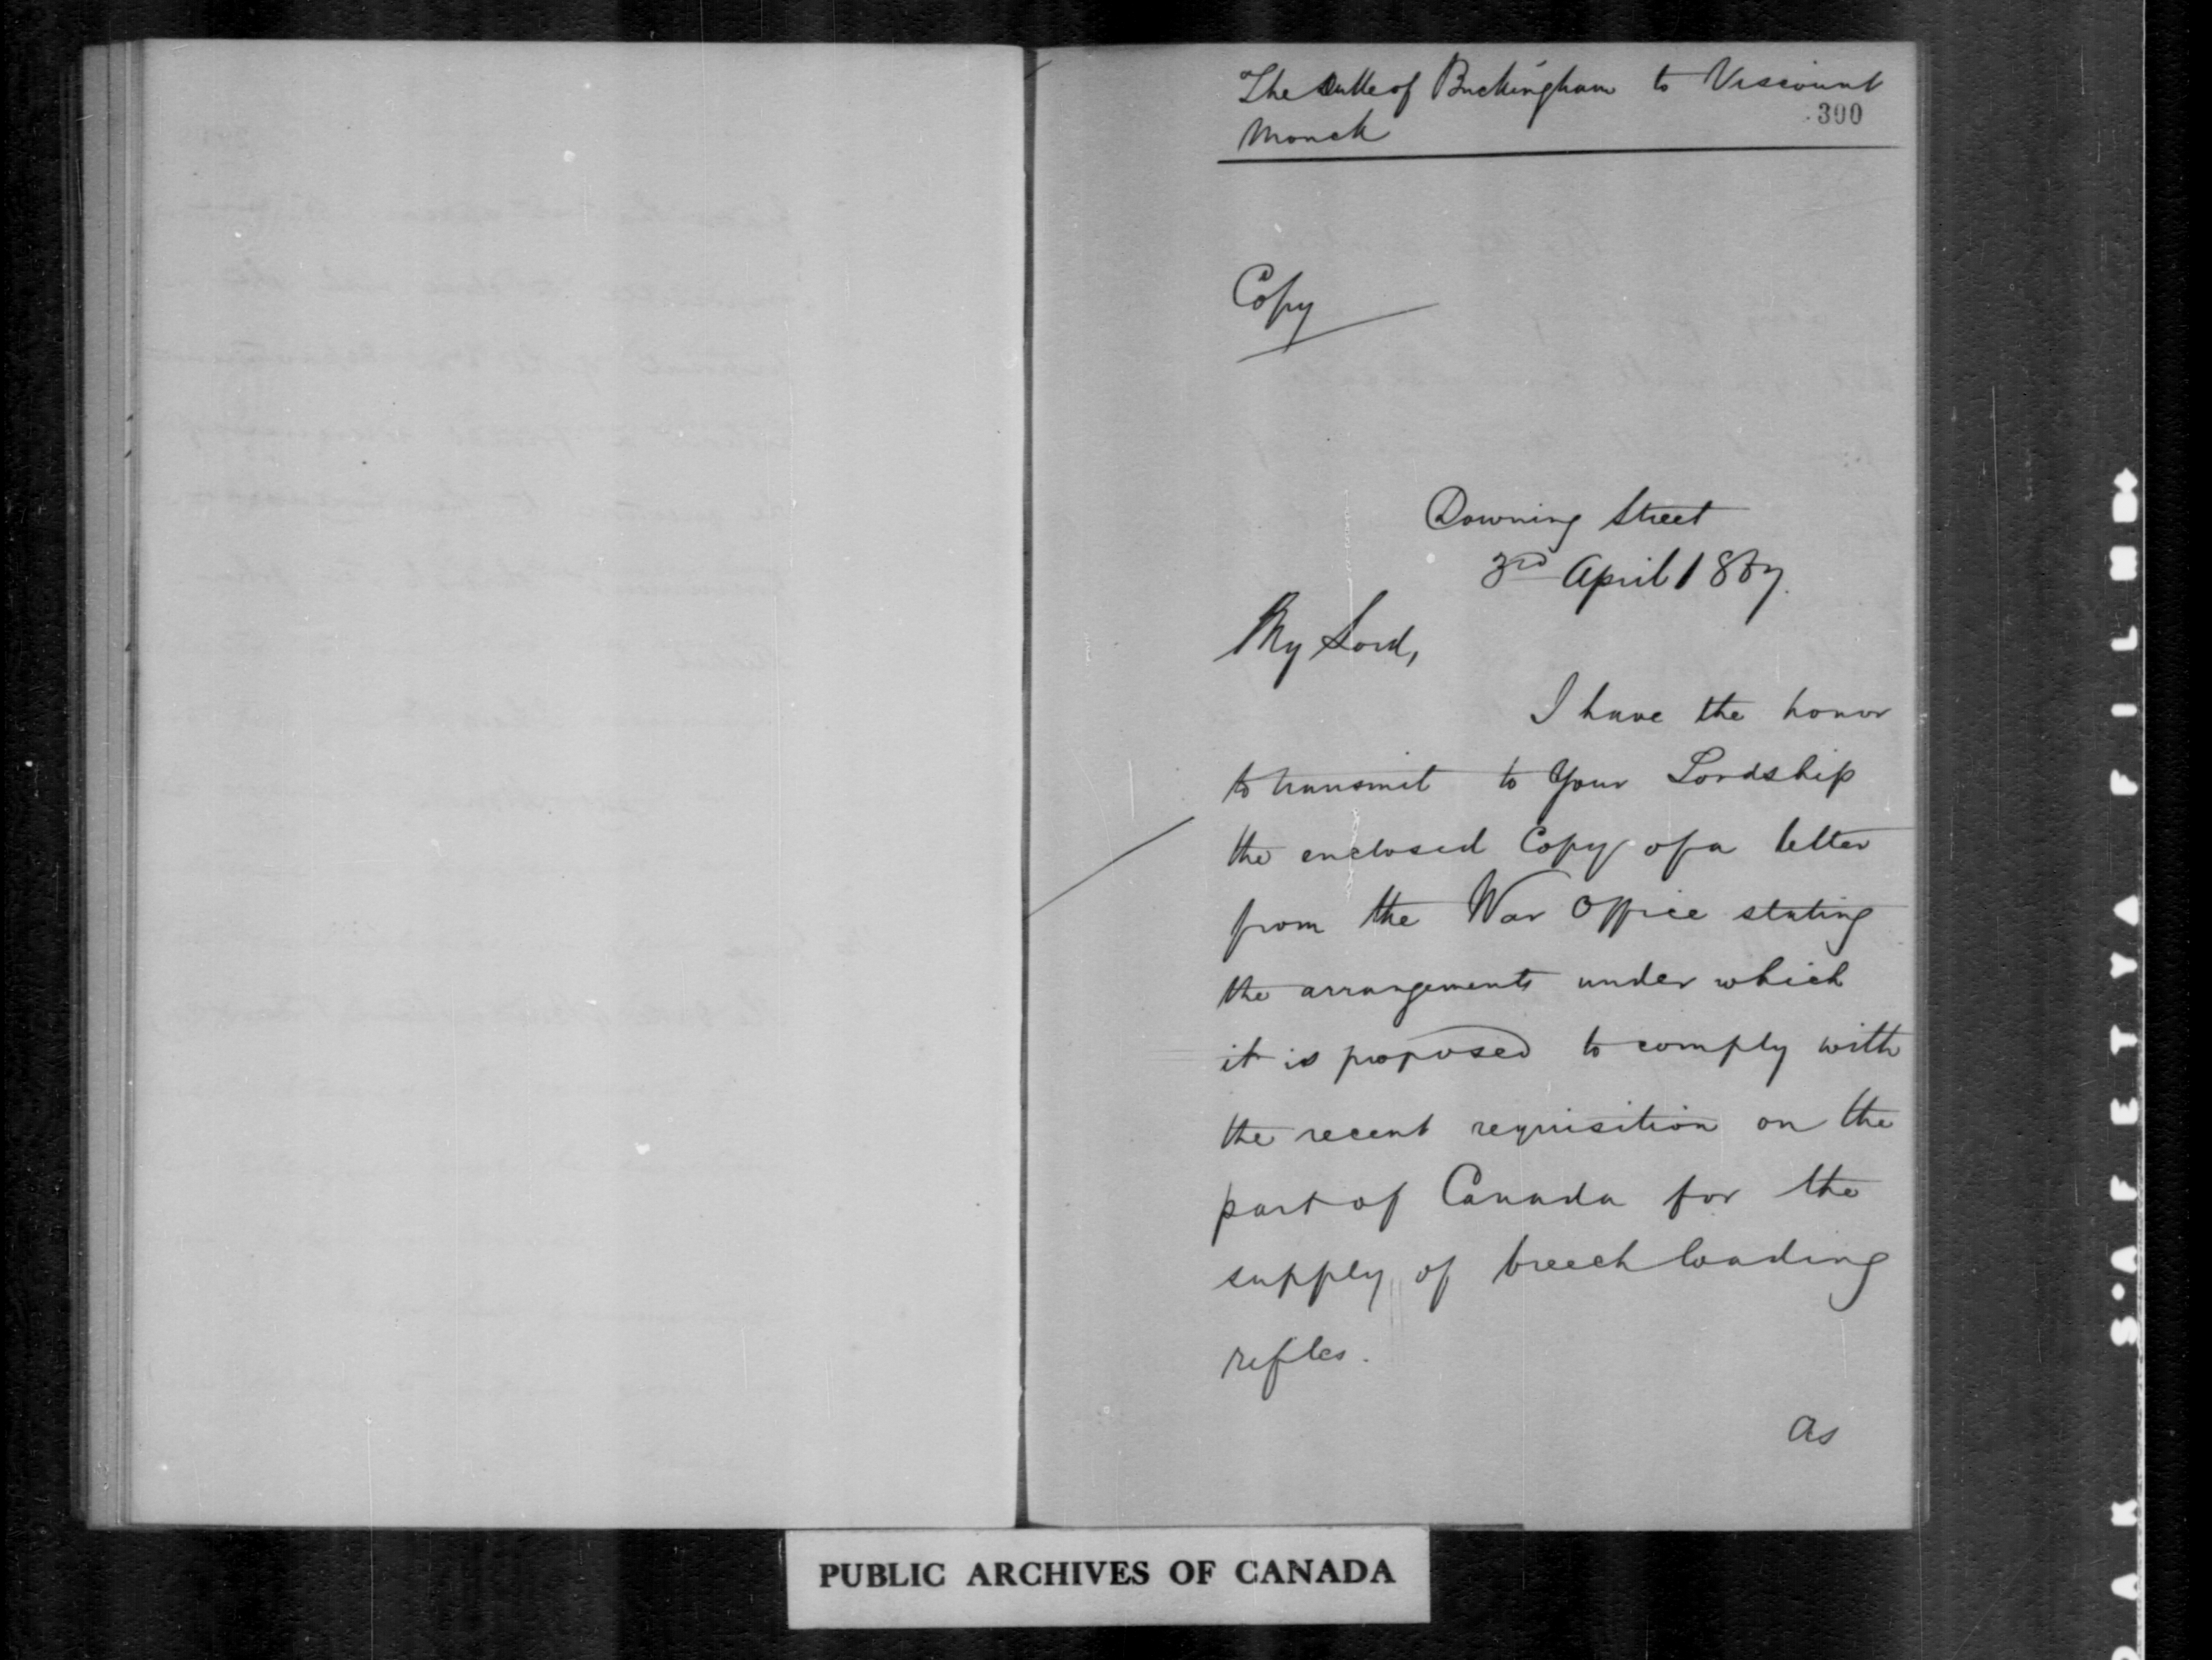 The Duke of Buckingham to Viscount
300
Monck
Copy
Downing Street
3rd April 1867.
My Lord,
I have the honor
to transmit to Your Lordship
the enclosed Copy of a letter
from the War Office stating
the arrangements under which
it is proposed to comply with
the recent requisition on the
part of Canada for the
supply of breech loading
rifles.
As
PUBLIC ARCHIVES OF CANADA
SAFETY FILM